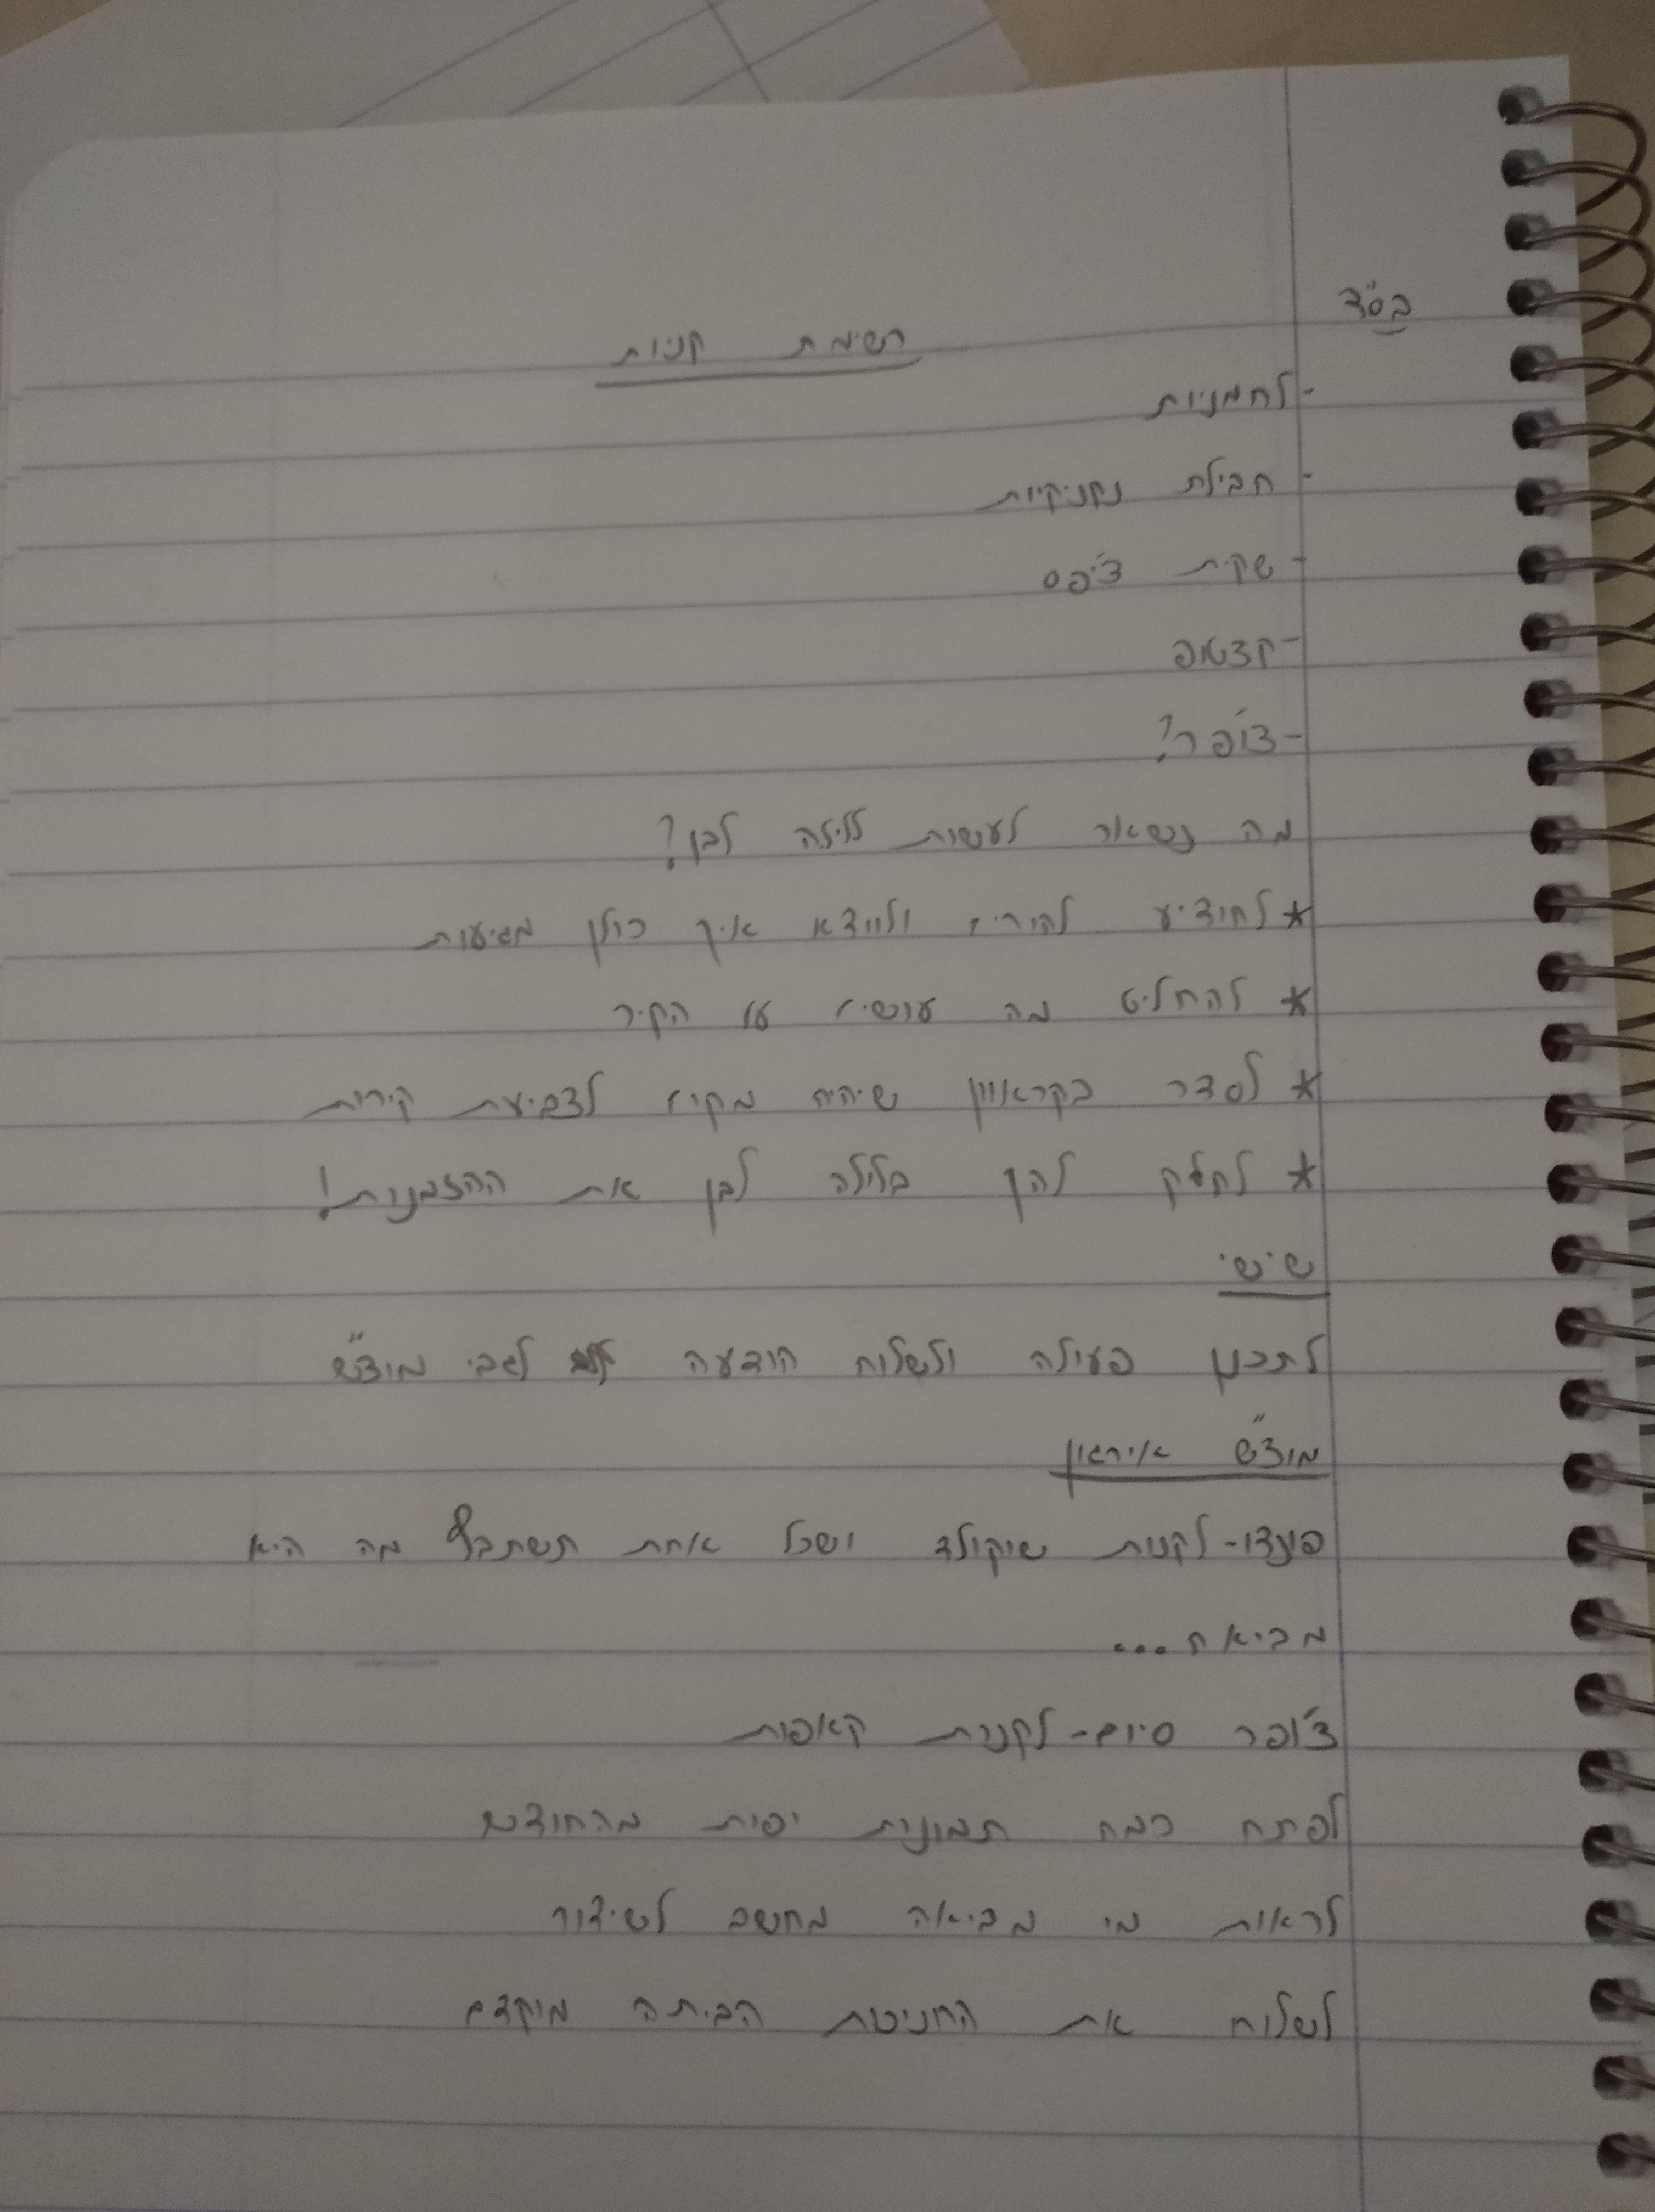 בס"ד
רשימת קניות
-לחמניות
- חבילת נקניקיות
- שקית צ'יפס
-קצשופ
-צ'ופר?
מה נשאר לעשות ללילה לבן?
*להודיע להורים ולוודא איך כולן מגיעות
* להחליט מה עושים על הקיר
* לסדר בקראוון שיהיה מקום לצביעת קירות
* לחלק להן בלילה לבן את ההזמנות!
שישי
לתכנן פעולה ולשלוח הודעה לגבי מוצ"ש
מוצ"ש אירגון
פונדו-לקנות שוקולד ושכל אחת תשתבץ מה היא
מביאה...
צ'ופר סיום-לקנות קאפות
לפתח כמה תמונות יפות מהחודש
לראות מי מביאה מחשב לשידור
לשלוח את החניכות הביתה מוקדם